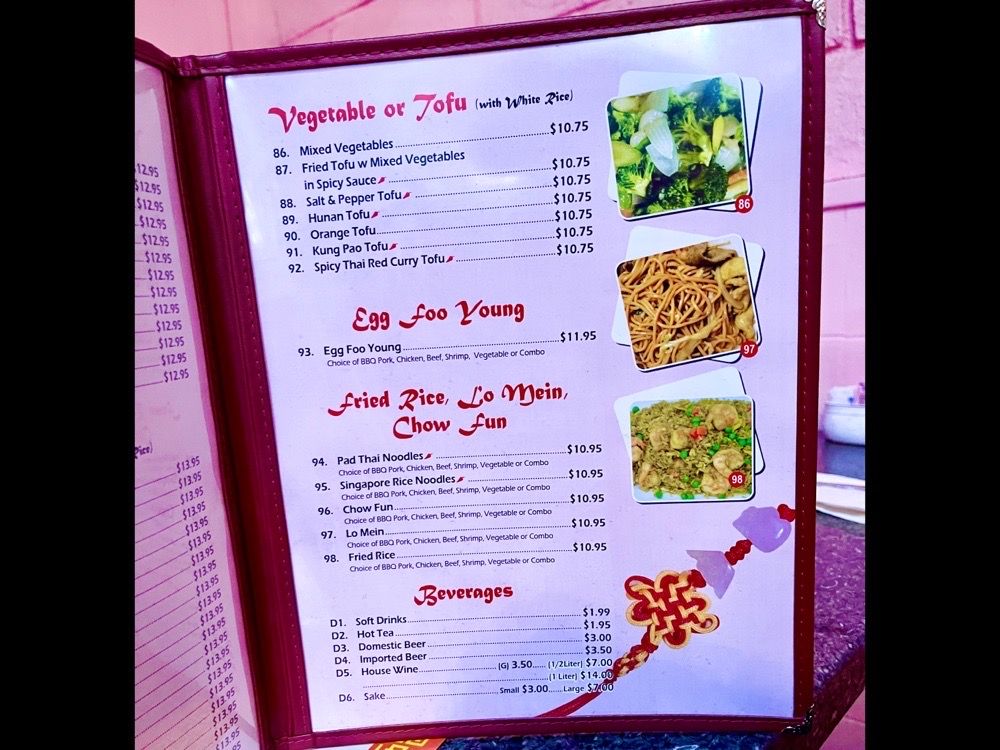 Vegetable or Tofu (with White Rice)
86. Mixed Vegetables $10.75
87. Fried Tofu w Mixed Vegetables
in Spicy Sauce $10.75
88. Salt & Pepper Tofu $10.75
89. Hunan Tofu $10.75
90. Orange Tofu $10.75
91. Kung Pao Tofu $10.75
92. Spicy Thai Red Curry Tofu $10.75
Egg Foo Young
93. Egg Foo Young $11.95
Choice of BBQ Pork, Chicken, Beef, Shrimp, Vegetable or Combo
Fried Rice, Lo Mein,
Chow Fun
94. Pad Thai Noodles $10.95
Choice of BBQ Pork, Chicken, Beef, Shrimp, Vegetable or Combo
95. Singapore Rice Noodles $10.95
Choice of BBQ Pork, Chicken, Beef, Shrimp, Vegetable or Combo
96. Chow Fun $10.95
Choice of BBQ Pork, Chicken, Beef, Shrimp, Vegetable or Combo
97. Lo Mein $10.95
Choice of BBQ Pork, Chicken, Beef, Shrimp, Vegetable or Combo
98. Fried Rice $10.95
Choice of BBQ Pork, Chicken, Beef, Shrimp, Vegetable or Combo
Beverages
D1. Soft Drinks $1.99
D2. Hot Tea $1.95
D3. Domestic Beer $3.00
D4. Imported Beer $3.50
D5. House Wine (G) 3.50 (1/2Liter) $7.00
(1 Liter) $14.00
D6. Sake Small $3.00 Large $7.00
86
97
98
$12.95
$12.95
$12.95
$12.95
$12.95
$12.95
$12.95
$12.95
$12.95
$12.95
$12.95
$12.95
$12.95
$13.95
$13.95
$13.95
$13.95
$13.95
$13.95
$13.95
$13.95
$13.95
$13.95
$13.95
$13.95
$13.95
$13.95
$13.95
$13.95